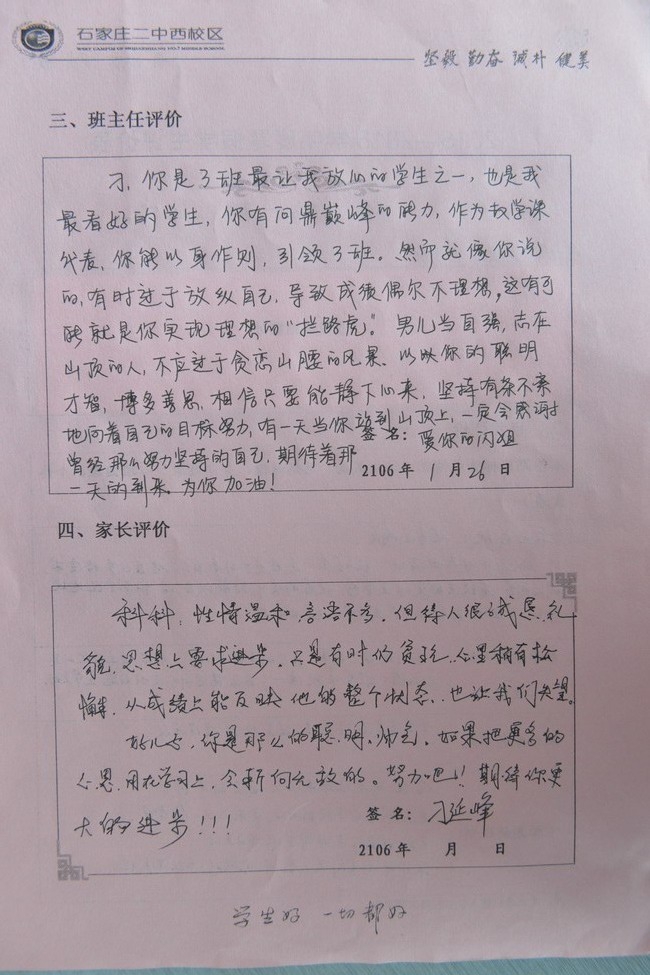 石家庄二中西校区
WEST CAMPUS OF SHIJIAZHUANG NO.2 MIDDLE SCHOOL
坚毅 勤奋 诚朴 健美
三、班主任评价
刁，你是3班最让我放心的学生之一，也是我
最看好的学生，你有问鼎巅峰的能力，作为数学课
代表，你能以身作则，引领3班。然而就像你说
的，有时过于放纵自己，导致成绩偶尔不理想，这有可
能就是你实现理想的“拦路虎”。男儿当自强，志在
山顶的人，不应过于贪恋山腰的风景，以你的聪明
才智，博学善思，相信只要能静下心来，坚持有条不紊
地向着自己的目标努力，有一天当你站到山顶上，一定会感谢
曾经那么努力坚持的自己，期待着那
一天的到来，为你加油！
签 名：爱你的闪姐
2106 年 1 月 26 日
四、家长评价
科科：性情温和 言语不多，但待人很诚恳、礼
貌，思想上要求进步，只是有时的贪玩，心里稍有松
懈，从成绩上能反映他的整个状态，也让我们失望。
你是那么的聪明、帅气，如果把更多的
心思用在学习上，会所向无敌的。努力吧！期待你更
大的进步！！！
签 名：刁延峰
2106 年 月 日
学生好 一切都好